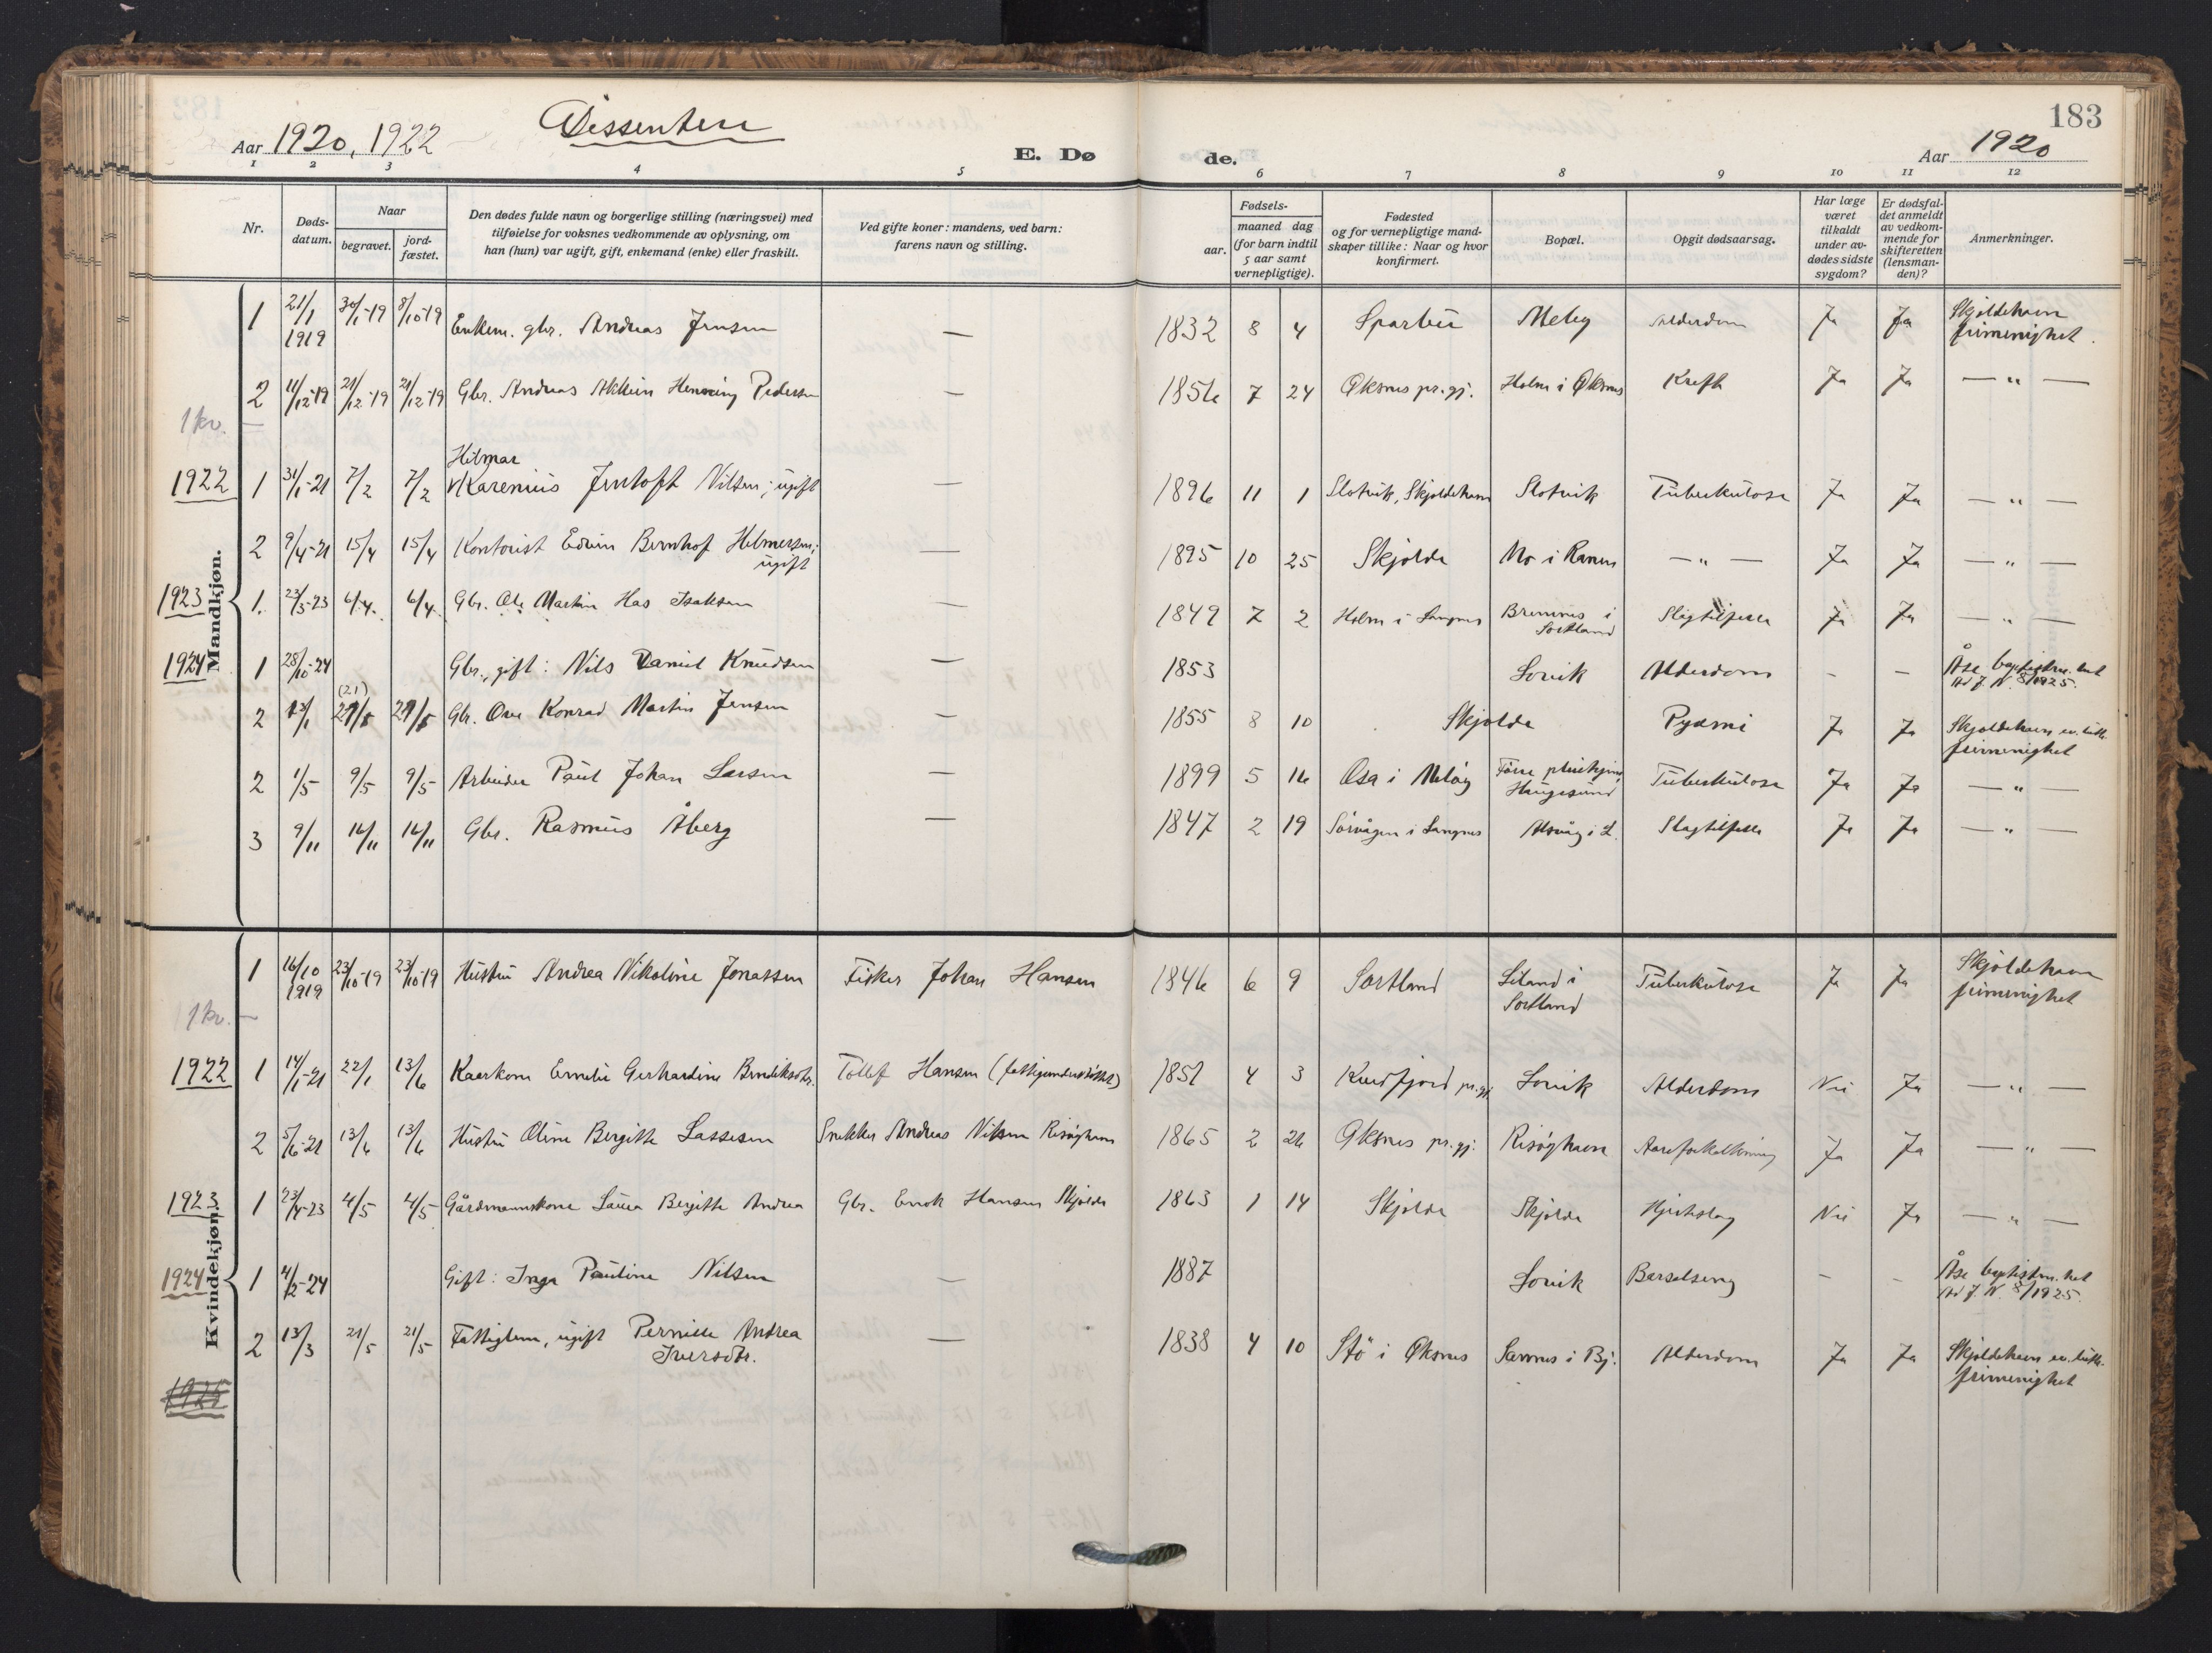 183
Dissentere
Aar 1920, 1922
E. Dø
de.
Aar 1920
1 2 3 4 5 6 7 8 9 10 11 12
Nr.
Døds-datum.
Naar
begravet.
jord-fæstet.
Den dødes fulde navn og borgerlige stilling (næringsvei) med
tilføielse for voksnes vedkommende av oplysning, om
han (hun) var ugift, gift, enkemand (enke) eller fraskilt.
Ved gifte koner: mandens, ved barn:
farens navn og stilling.
Fødsels-
aar.
maaned dag
(for barn indtil
5 aar samt
vernepligtige).
Fødested
og for vernepligtige mand-
skaper tillike: Naar og hvor
konfirmert.
Bopæl.
Opgit dødsaarsag.
Har læge
været
tilkaldt
under av-
dødes sidste
sygdom?
Er dødsfal-
det anmeldt
av vedkom-
mende for
skifteretten
(lensman-
den)?
Anmerkninger.
Mandkjøn.
1 21/1 1919 30/1-19 8/10-19 Enkem. gbr. Andreas Jensen — 1832 8 4 Sparbu Meby Alderdom Ja Ja Skjoldehavn frimenighet.
2 11/12-19 21/12-19 21/12-19 Gbr. Andreas Henning Pedersen — 1856 7 24 Øksnes pr.gj. Holm i Øksnes Kreft Ja Ja — " —
1 kv. —
1922 1 31/1-21 7/2 7/2 Hilmar Karenius Jentoft Nilsen; ugift — 1896 11 1 Slotvik, Skjoldehavn Slotvik Tuberkulose Ja Ja — " —
2 9/4-21 15/4 15/4 Kontorist Edvin Bernhof Helmersen; ugift — 1895 10 25 Skjolde Mo i Ranen — " — Ja Ja — " —
1923 1. 23/3-23 6/4. 6/4. Gbr. Ole Martin Has Isaksen — 1849 7 2 Holm i Langnes Bremnes i Sortland Slagtilfelle Ja Ja — " —
1924 1 28/10-24 Gbr., gift: Nils Daniel Knudsen — 1853 Lovik Alderdom - — Åse baptistm.het ifl J. N. 8/1925.
2 13/1 (21) 21/5 21/5 Gbr. Ove Konrad Martin Jensen — 1855 8 10 Skjolde Pyæmi Ja Ja Skjoldehavn ev. luth. frimenighet
2 1/5 9/5 9/5 Arbeider Paul Johan Larsen — 1899 5 16 Osa i Meløy Haugesund Tuberkulose Ja Ja — " —
3 9/11 16/11 16/11 Gbr. Rasmus Åberg — 1847 2 19 Sørvågen i Langnes Alsvåg i L. Slagtilfelle Ja Ja — " —
Kvindekjøn.
1 16/10 1919 23/10-19 23/10-19 Hustru Andrea Nikoline Jonassen Fisker Johan Hansen 1846 6 9 Sortland Liland i Sortland Tuberkulose Ja Ja Skjoldehavn frimenighet
1 kv. —
1922 1 14/1-21 22/1 13/6 Kaarkone Emelie Gerhardine Bendiksdtr. Tollef Hansen (fattigunderstøttet) 1851 4 3 Kvedfjord pr.gj. Lovik Alderdom Nei Ja — " —
2 5/6-21 13/6 13/6 Hustru Oline Bergitte Lassesen Snekker Andreas Nilsen Risøyhavn 1865 2 26 Øksnes pr.gj. Risøyhavn Aareforkalkning Ja Ja — " —
1923 1 23/4-23 4/5 4/5 Gårdmannskone Laura Bergitte Andrea Gbr. Enok Hansen Skjolde 1863 1 14 Skjolde Skjolde Hjerteslag Nei Ja — " —
1924 1 4/2-24 Gift: Inga Pauline Nilsen — 1887 Lovik Barselseng - - Åse baptistm.het ifl J. N. 8/1925.
2 13/3 21/5 21/5 Fattiglem, ugift Pernille Andrea Iversdtr. — 1838 4 10 Stø i Øksnes Sannes i Bj. Alderdom Ja Ja Skjoldehavn ev. luth. frimenighet
1925